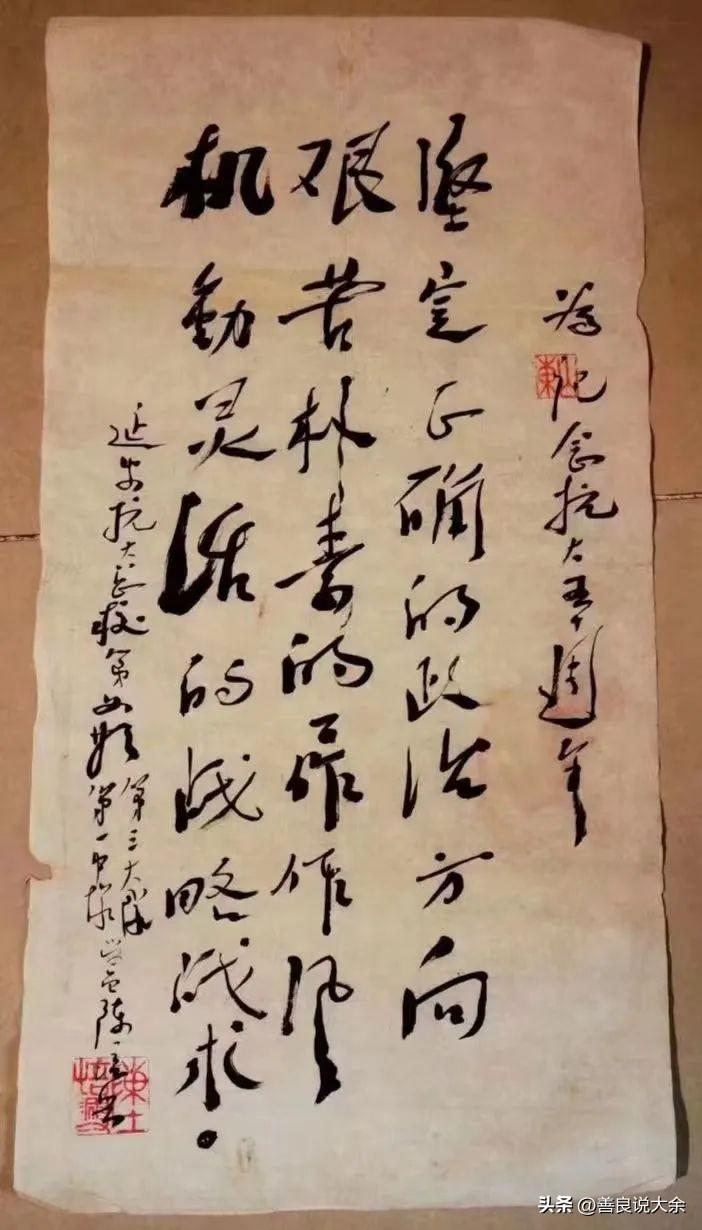 为纪念抗大五十週年
坚定正确的政治方向
艰苦朴素的工作作风
机動灵活的战略战术。
延安抗大总校第期
第三大队
第一中队
学员陈
头条 @善良说大余